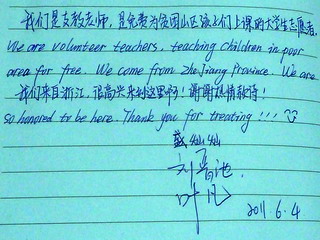 我们是支教老师，是免费为贫困山区孩子们上课的大学生志愿者，
We are volunteer teachers, teaching children in poor
area for free. We come from ZheJiang Province. We are
我们来自浙江，很高兴来到这里啊！谢谢热情款待！
so honored to be here. Thank you for treating!!!
戴灿灿
刘晋池
叶凡
2011.6.4